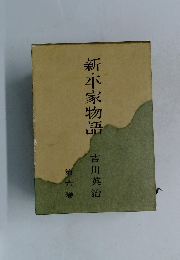 新平家物語
吉川英治
第六巻